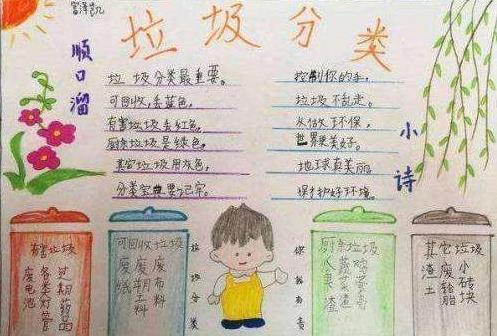 富泽凯
垃圾分类
顺口溜
垃圾分类最重要。
可回收,丢蓝色,
有害垃圾丢红色,
厨余垃圾是绿色,
其它垃圾用灰色,
分类宝典要记牢。
小诗
控制你的手,
垃圾不乱走。
从你做环保,
世界更美好。
地球真美丽
保护好环境。
有害垃圾
过期药品
各类灯管
废电池
可回收垃圾
废布料
废塑料
废纸
垃圾分类
你我有责
厨余垃圾
蔬菜渣
果
其它垃圾
小砖块
废轮胎
渣土